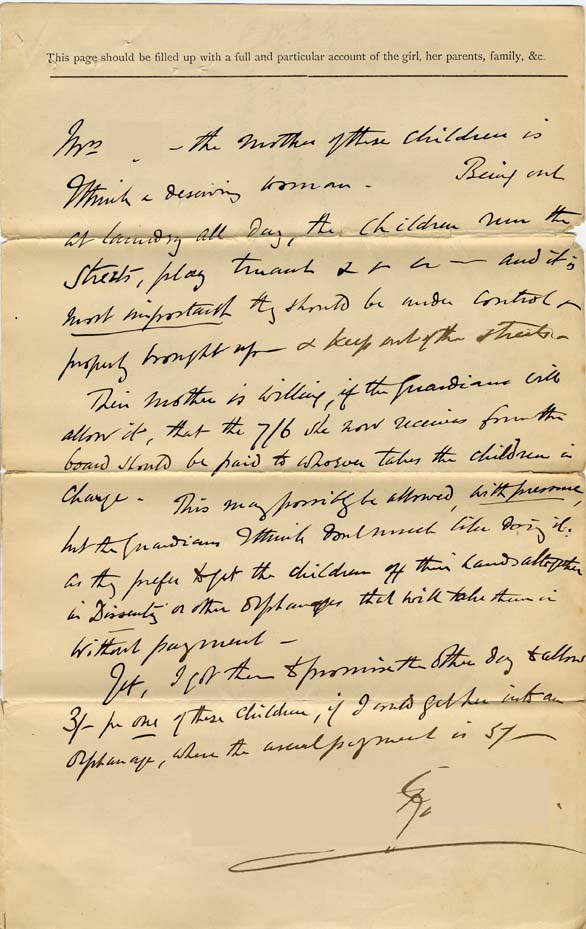 This page should be filled up with a full and particular account of the girl, her parents, family, &c.
Mrs — the mother of these children is
I think a deserving woman. Being out
at laundry all day, the children run the
streets, play truant & — and it is
most important they should be under control &
properly brought up & keep out of the streets.
Their mother is willing, if the Guardians will
allow it, that the 7/6 she now receives from the
board should be paid to whoever takes the children in
charge - This may possibly be allowed, with pressure,
but the Guardians I think don't much like doing it:
as they prefer to get the children off their hands altogether
in Dissenting or other Orphanages that will take them in
without payment —
Yet, I got them to promise the other day to allow
3/- for one of these children, if I could get her into an
Orphanage, where the usual payment is 5/-